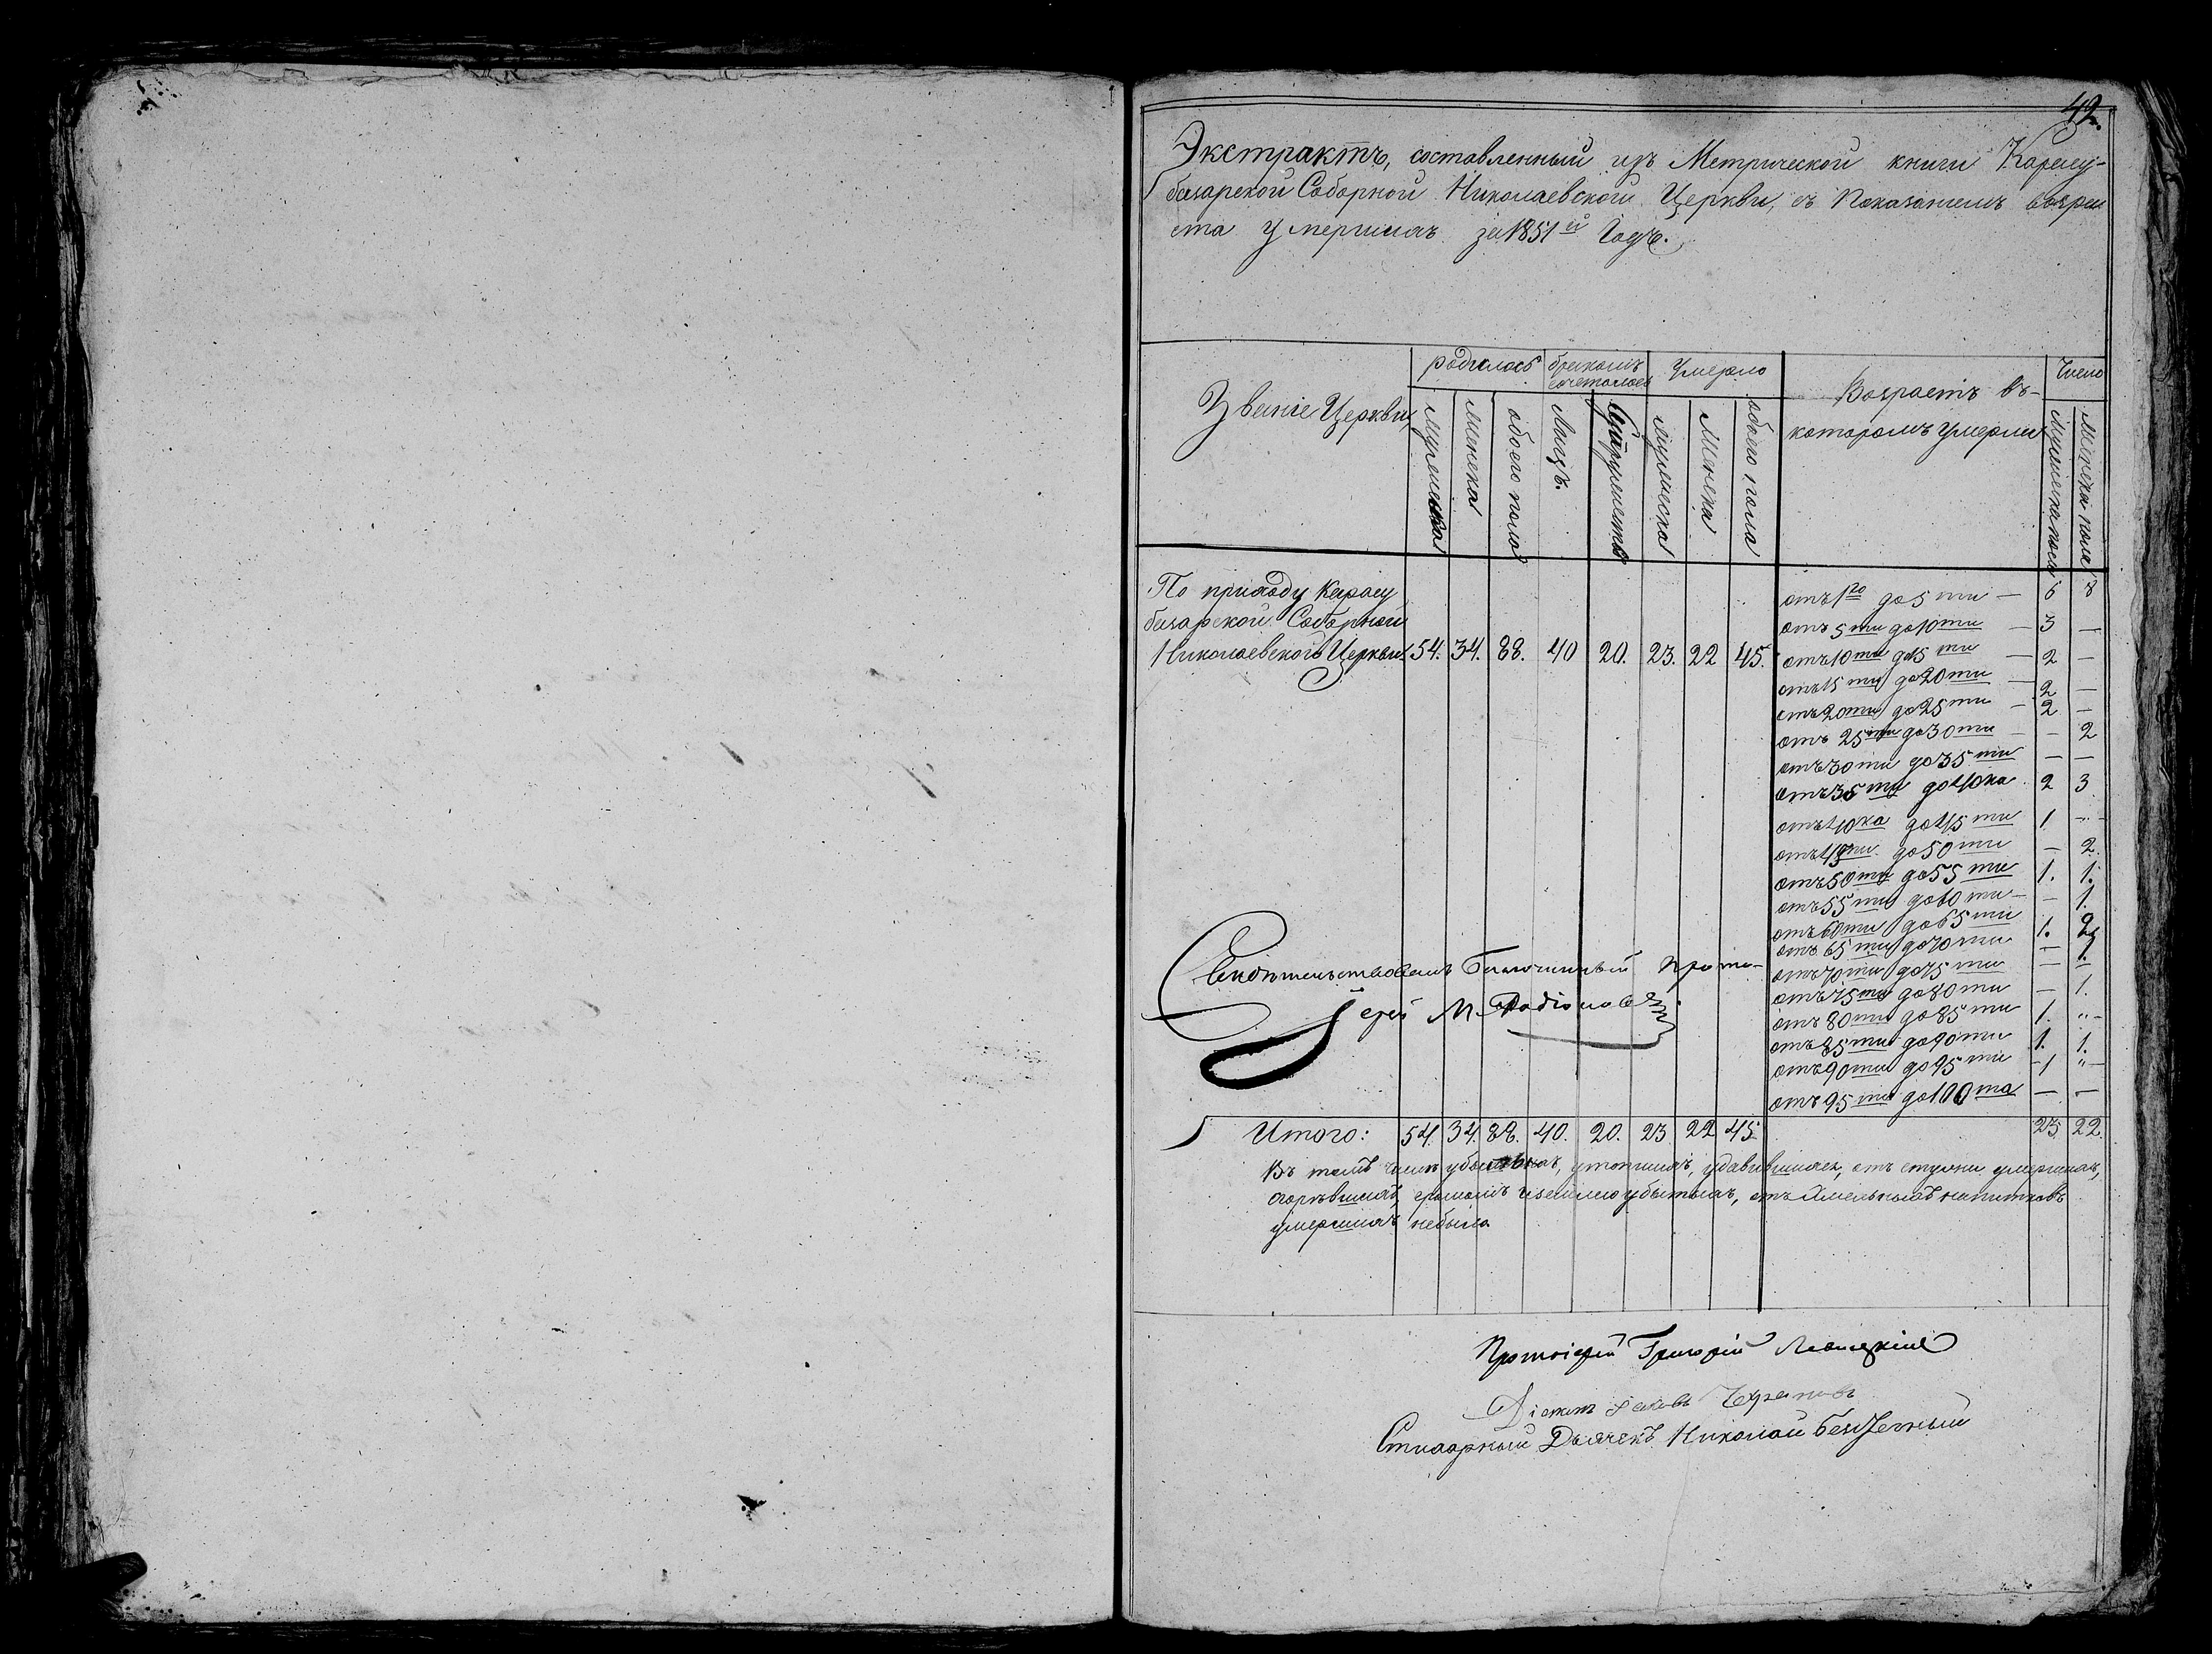 42.
Экстрактъ, составленный изъ Метрической книги Карасу-
базарской Соборной Николаевской Церкви, съ показаніемъ возра
ста умершихъ за 1851й Годъ.
Званіе Церкви
родилось
бракомъ сочеталось
Умерло
Возрастъ въ-
которомъ умерли
Число
Мужеска
Женска
обоего пола
Лицъ.
Супружествъ
Мужеска
Женска
обоего пола
Мужеска пола
Женска пола
По приходу Карасу
базарской Соборной
Николаевской Церкви 54. 34. 88. 40 20. 23. 22 45.
отъ 1го до 5ти — 6 8
отъ 5ти до 10ти — 3 —
отъ 10ти до 15ти — 2 —
отъ 15ти до 20ти — 2 —
отъ 20ти до 25ти — 2 —
отъ 25ти до 30ти — — 2
отъ 30ти до 35ти — —
отъ 35ти до 40ка 2 3
отъ 40ка до 45ти 1 —
отъ 45ти до 50ти — 2.
отъ 50ти до 55ти 1. 1.
отъ 55ти до 60ти — — 1.
отъ 60ти до 65ти 1. 2
отъ 65ти до 70ти — 1.
отъ 70ти до 75ти — —
отъ 75ти до 80ти — 1.
отъ 80ти до 85ти 1. „-
отъ 85ти до 90ти 1. 1.
отъ 90ти до 95ти 1 „-
отъ 95ти до 100та — —
Свидѣтельствовалъ Благочинный прото-
Іерей М. Родіоновъ
Итого: 54. 34. 88. 40. 20. 23 22 45 23 22.
Въ томъ числѣ убитыхъ, утопшихъ, удавившихся, отъ стужи умершихъ,
сгорѣвшихъ, громомъ и землею убитыхъ, отъ хмельныхъ напитковъ
умершихъ небыло
Протоіерей Григорій
Діаконъ Іаковъ
Стихарный Дьячекъ Николай